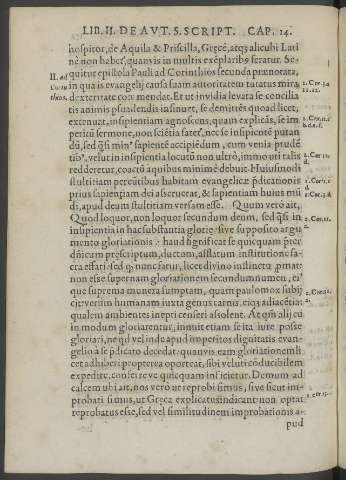 LIB. II. DE AVT. S. SCRIPT. CAP. 14.
hospitor, de Aquila & Priscilla, Gręcè, atq; alicubi Lati
nè non habet, quanvis in exẽplaribꝰ feratur. Se-
II. ad quitur epistola Pauli ad Corinthios secunda prænotata,
in qua is evangelij causa suam autoritatem tutatus mira
thios. dexteritate com mendat. Et ut invidia levata se concilia
tis animis psuadendis insinuet, se demittẽs quoad licet,
extenuat, insipientiam agnoscens, quam explicãs, se im
pericũ sermone, non sciẽtia fatet, nec se insipientẽ putan
dũ, sed q̃si minꝰ sapientẽ accipiẽdum, cum venia prudẽ
tibꝰ, velut in insipientia locutũ non ultrò, immo uti talis
redderetur, coactũ aquibus minimè debuit. Huiusmodi
stultitiam percutibus habitam evangelicę p̃dicationis
prius sapientiam dei asseruerat, & sapientiam huius mũ
di, apud deum stultitiam versam esse. Quum verò ait,
Quod loquor, non loquor secundum deum, sed q̃si in
insipientia in hac substantia glorię sive supposito argu
mento gloriationis: haud significat se quicquam p̃ter
dñicum prescriptum, ductum, afflatum institutione sa-
cra effari: sed
non esse supernam gloriationem secundum numen, eaꝰ
que suprema munera sumptam, quam paulo mox subij
cit, verùm humanam iuxta genus carnis, eiq; adiacẽtia:
qualem ambientes inepti censeri assolent. At q̃m alij eũ
in modum gloriarentur, innuit etiam se ita iure posse
gloriari, ne qd vel inde apud imperitos dignitatis evan-
gelio à se p̃dicato decedat: quanvis eam gloriationem li
cet adhiberi propterea oporteat, sibi veluti cõducibilem
expedire, conferreve quicquam inficietur. Demum ad
calcem ubi ait, nos verò ut reprobi simus, sive sicut im-
probati simus, ut Gręca explicatius indicant: non optat
reprobatus esse, sed vel similitudinem improbationis a-
pud